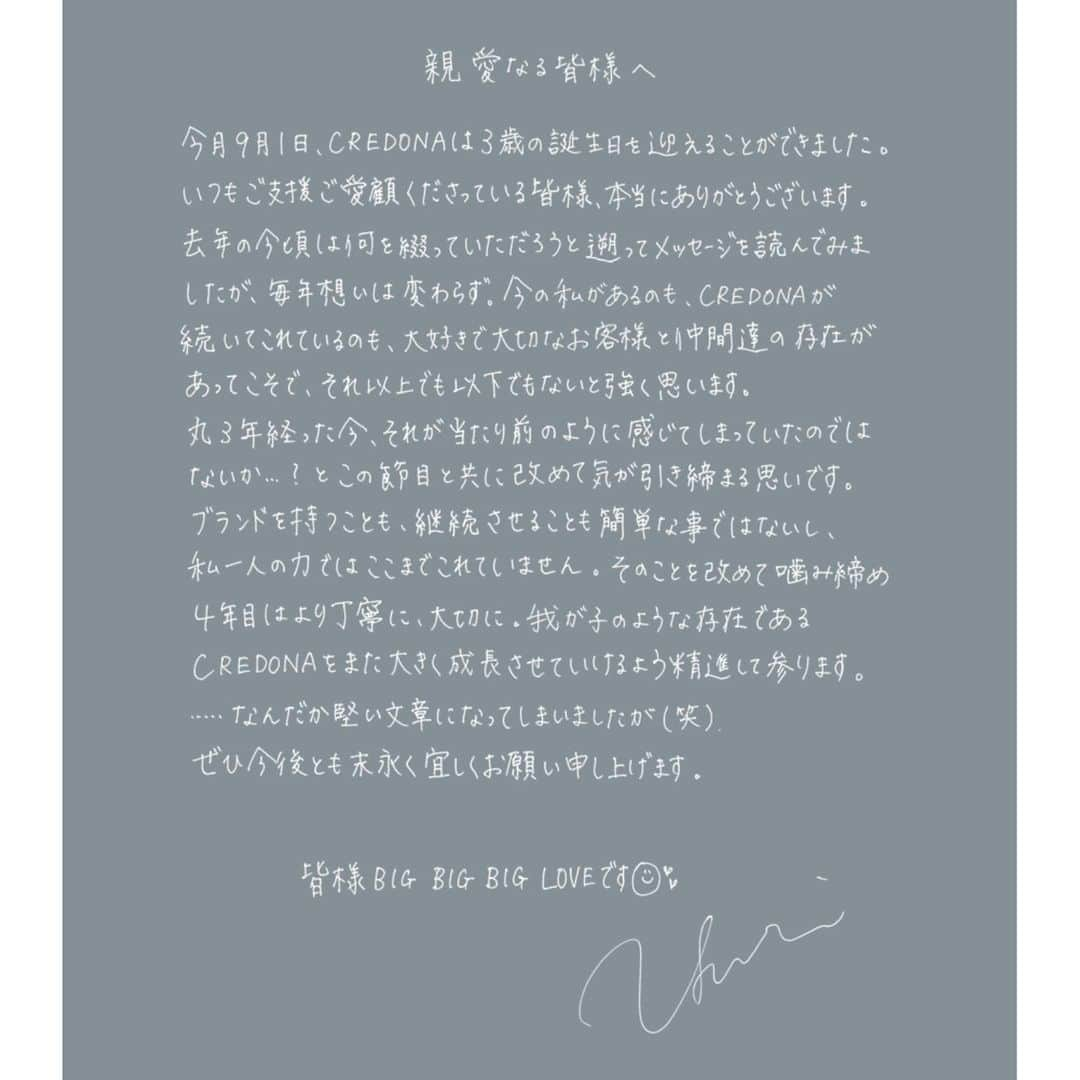 親愛なる皆様へ
今月9月1日、CREDONAは3歳の誕生日を迎えることができました。
いつもご支援ご愛顧くださっている皆様、本当にありがとうございます。
去年の今頃は何を綴っていただろうと遡ってメッセージを読んでみま
したが、毎年想いは変わらず。今の私があるのも、CREDONAが
続いてこれているのも、大好きで大切なお客様と仲間達の存在が
あってこそで、それ以上でも以下でもないと強く思います。
丸3年経った今、それが当たり前のように感じてしまっていたのでは
ないか…？とこの節目と共に改めて気が引き締まる思いです。
ブランドを持つことも、継続させることも簡単な事ではないし、
私一人の力ではここまでこれていません。そのことを改めて噛み締め
4年目はより丁寧に、大切に。我が子のような存在である
CREDONAをまた大きく成長させていけるよう精進して参ります。
……なんだか堅い文章になってしまいましたが(笑)
ぜひ今後とも末永く宜しくお願い申し上げます。
皆様BIG BIG BIG LOVEです